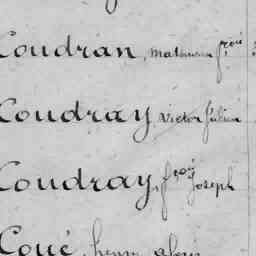 Coudran, Mathurin frois
Coudray Victor Julien
Coudray, frois Joseph
Coué, henri